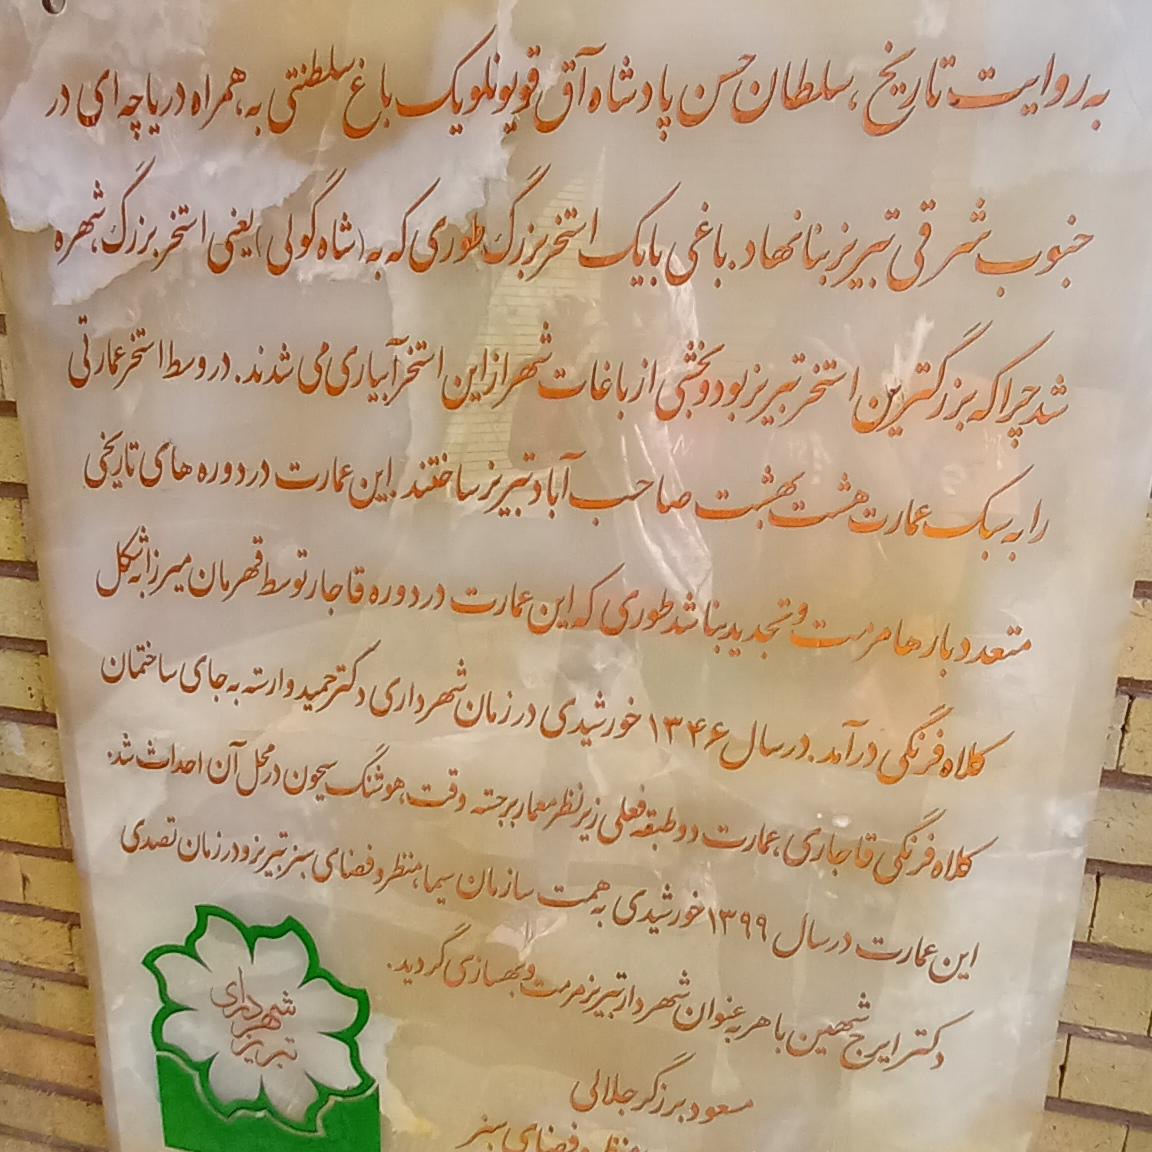 به روایت تاریخ، سلطان حسن پادشاه آق قویونلو یک باغ سلطنتی به همراه دریاچه ای در
جنوب شرقی تبریز بنا نهاد. باغی با یک استخر بزرگ طوری که به (شاه گولی) یعنی استخر بزرگ، شهره
شد چرا که بزرگترین استخر تبریز بود و بخشی از باغات شهر از این استخر آبیاری می شدند. در وسط استخر عمارتی
را به سبک عمارت هشت بهشت صاحب آباد تبریز ساختند. این عمارت در دوره های تاریخی
متعدد بارها مرمت و تجدید بنا شد طوری که این عمارت در دوره قاجار توسط قهرمان میرزا به شکل
کلاه فرنگی درآمد. در سال ۱۳۴۶ خورشیدی در زمان شهرداری دکتر حمید وارسته به جای ساختمان
کلاه فرنگی قاجاری، عمارت دو طبقه فعلی زیر نظر معمار برجسته وقت، هوشنگ سیحون در محل آن احداث شد.
این عمارت در سال ۱۳۹۹ خورشیدی به همت سازمان سیما، منظر و فضای سبز تبریز و در زمان تصدی
دکتر ایرج شهین باهر به عنوان شهردار تبریز مرمت و بهسازی گردید.
مسعود برزگر جلالی
منظر و فضای سبز
شهرداری
تبریز